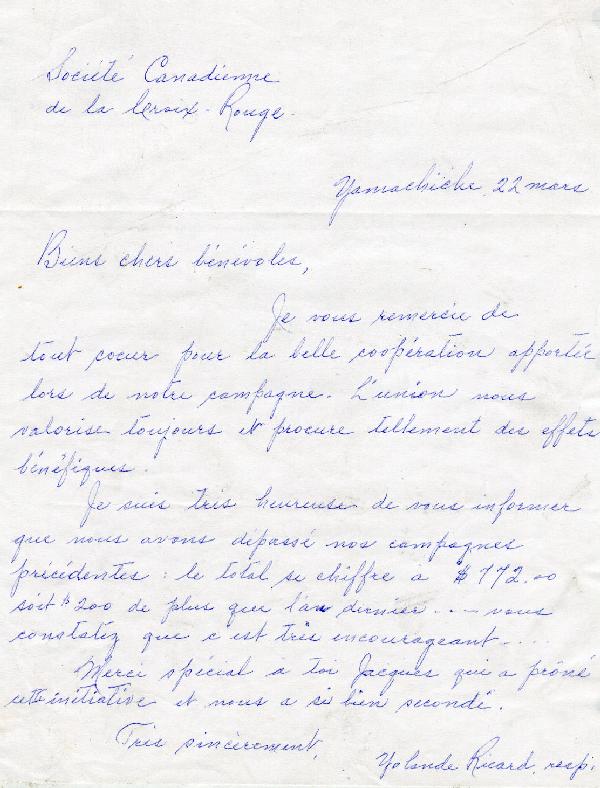 Société Canadienne
de la Croix-Rouge.
Yamachiche, 22 mars
Biens chers bénévoles,
Je vous remercie de
tout coeur pour la belle coopération apportée
lors de notre campagne. L'union nous
valorise toujours et procure tellement des effets
bénéfiques.
Je suis très heureuse de vous informer
que nous avons dépassé nos campagnes
précédentes: le total se chiffre à $772.00
soit $200 de plus que l'an dernier.... vous
constatez que c est très encourageant....
Merci spécial a toi Jacques qui a prôné
cette initiative et nous a si bien secondé.
Très sincèrement,
Yolande Ricard, resp.